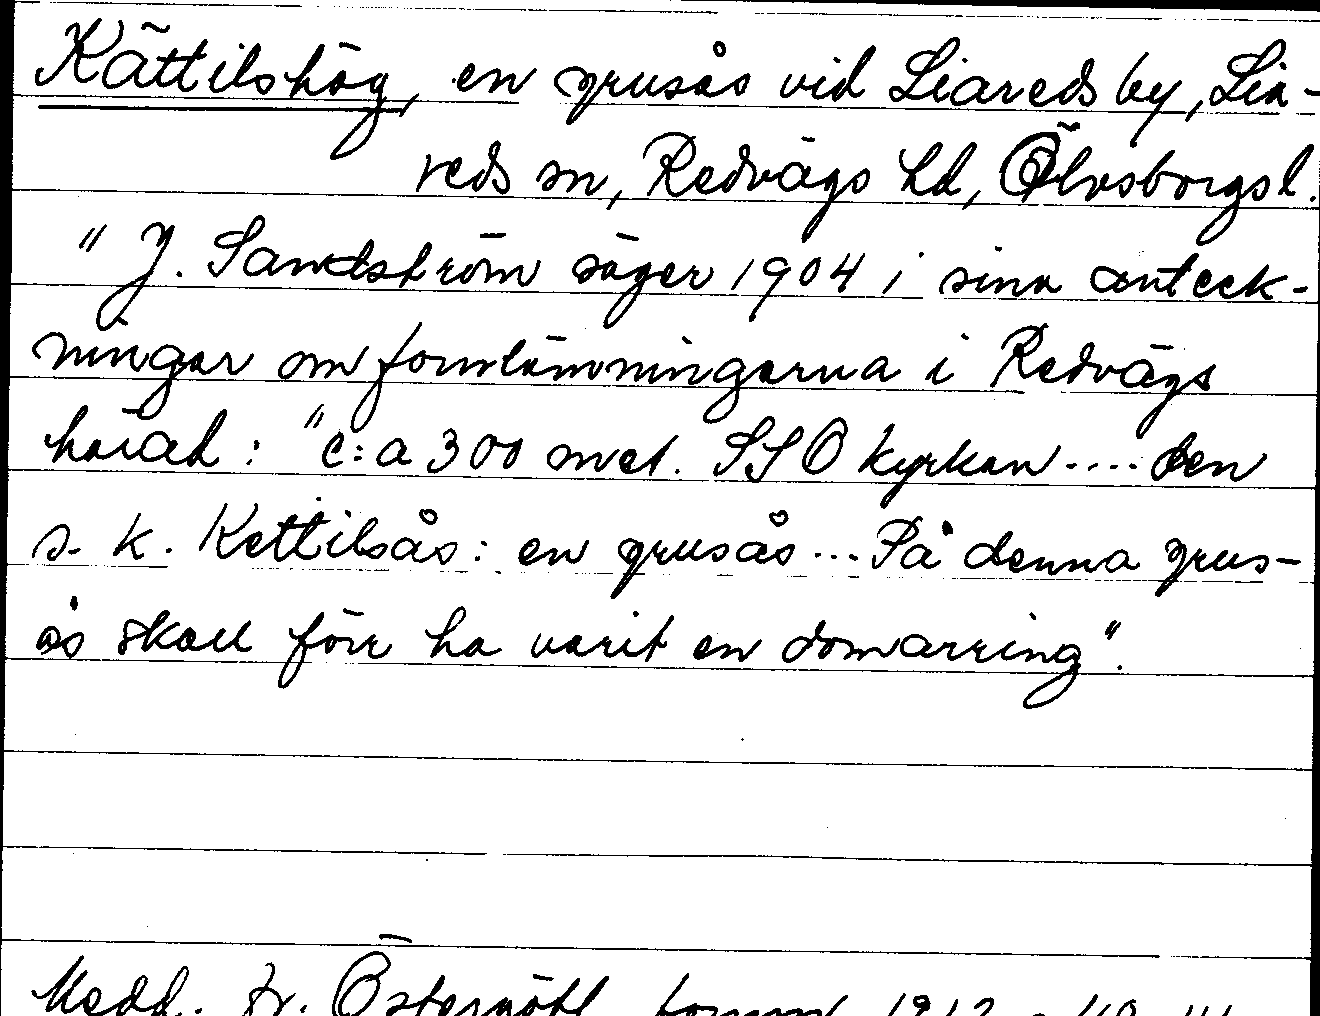 Kättilshög, en grusås vid Liareds by, Lia-
reds sn, Redvägs hd, Älvsborgs l.
" J. Sandström säger 1904 i sina anteck-
ningar om fornlämningarna i Redvägs
härad: "c:a 300 met. SSO kyrkan .... den
s. k. Kettilsås: en grusås ... På denna grus-
ås skall förr ha varit en domarring".
Medd. fr. Östergötl.